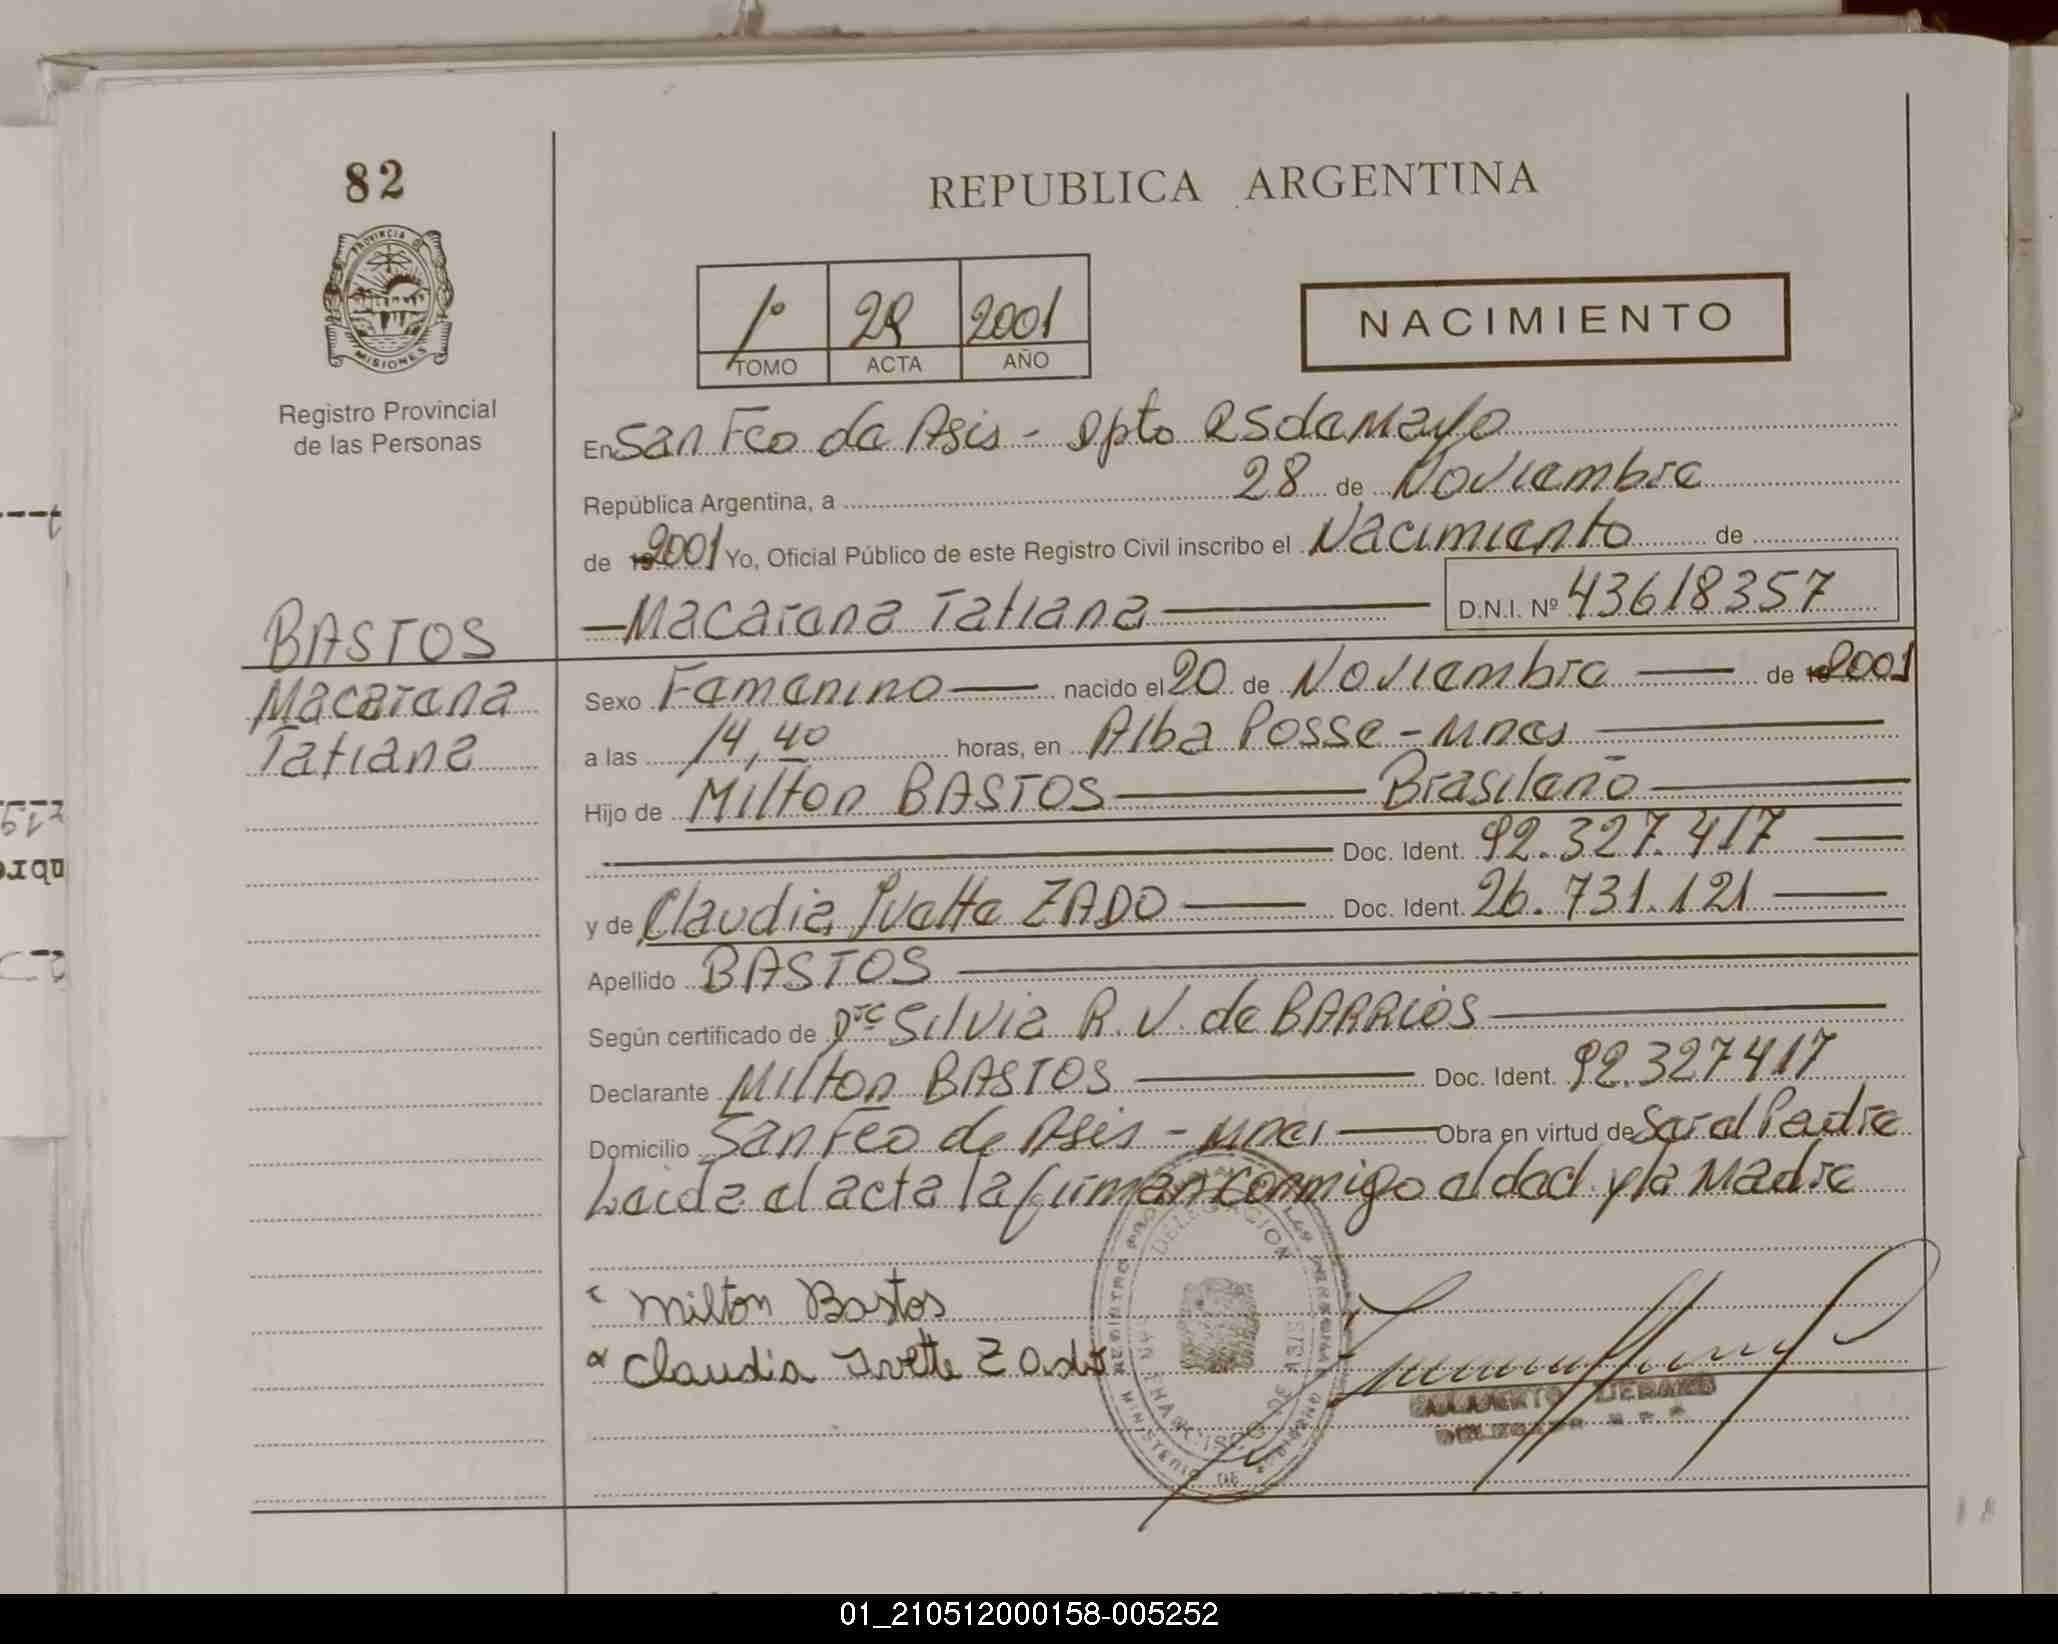 82
REPUBLICA ARGENTINA
PROVINCIA DE
MISIONES
Registro Provincial
de las Personas
1º 29 2001
TOMO ACTA AÑO
NACIMIENTO
En San Fco de Asis - Dpto 25 de Mayo
República Argentina, a 28 de Noviembre
de 2001 Yo, Oficial Público de este Registro Civil inscribo el Nacimiento de
Macarena Tatiana D.N.I. Nº 43618357
BASTOS
Macarena
Tatiana
Sexo Femenino nacido el 20 de Noviembre de 2001
a las 14,40 horas, en Alba Posse - Mnes
Hijo de Milton BASTOS Brasileño
Doc. Ident. 92.327.417
y de Claudia Ivette ZADO Doc. Ident. 26.731.121
Apellido BASTOS
Según certificado de Dra Silvia R. V. de BARRIOS
Declarante Milton BASTOS Doc. Ident. 92.327417
Domicilio San Fco de Asis - Mnes Obra en virtud de Ser el Padre
Leida el acta la firman conmigo el decl y la Madre
Milton Bastos
Claudia Ivette Zado
DELEGACION
01_210512000158-005252